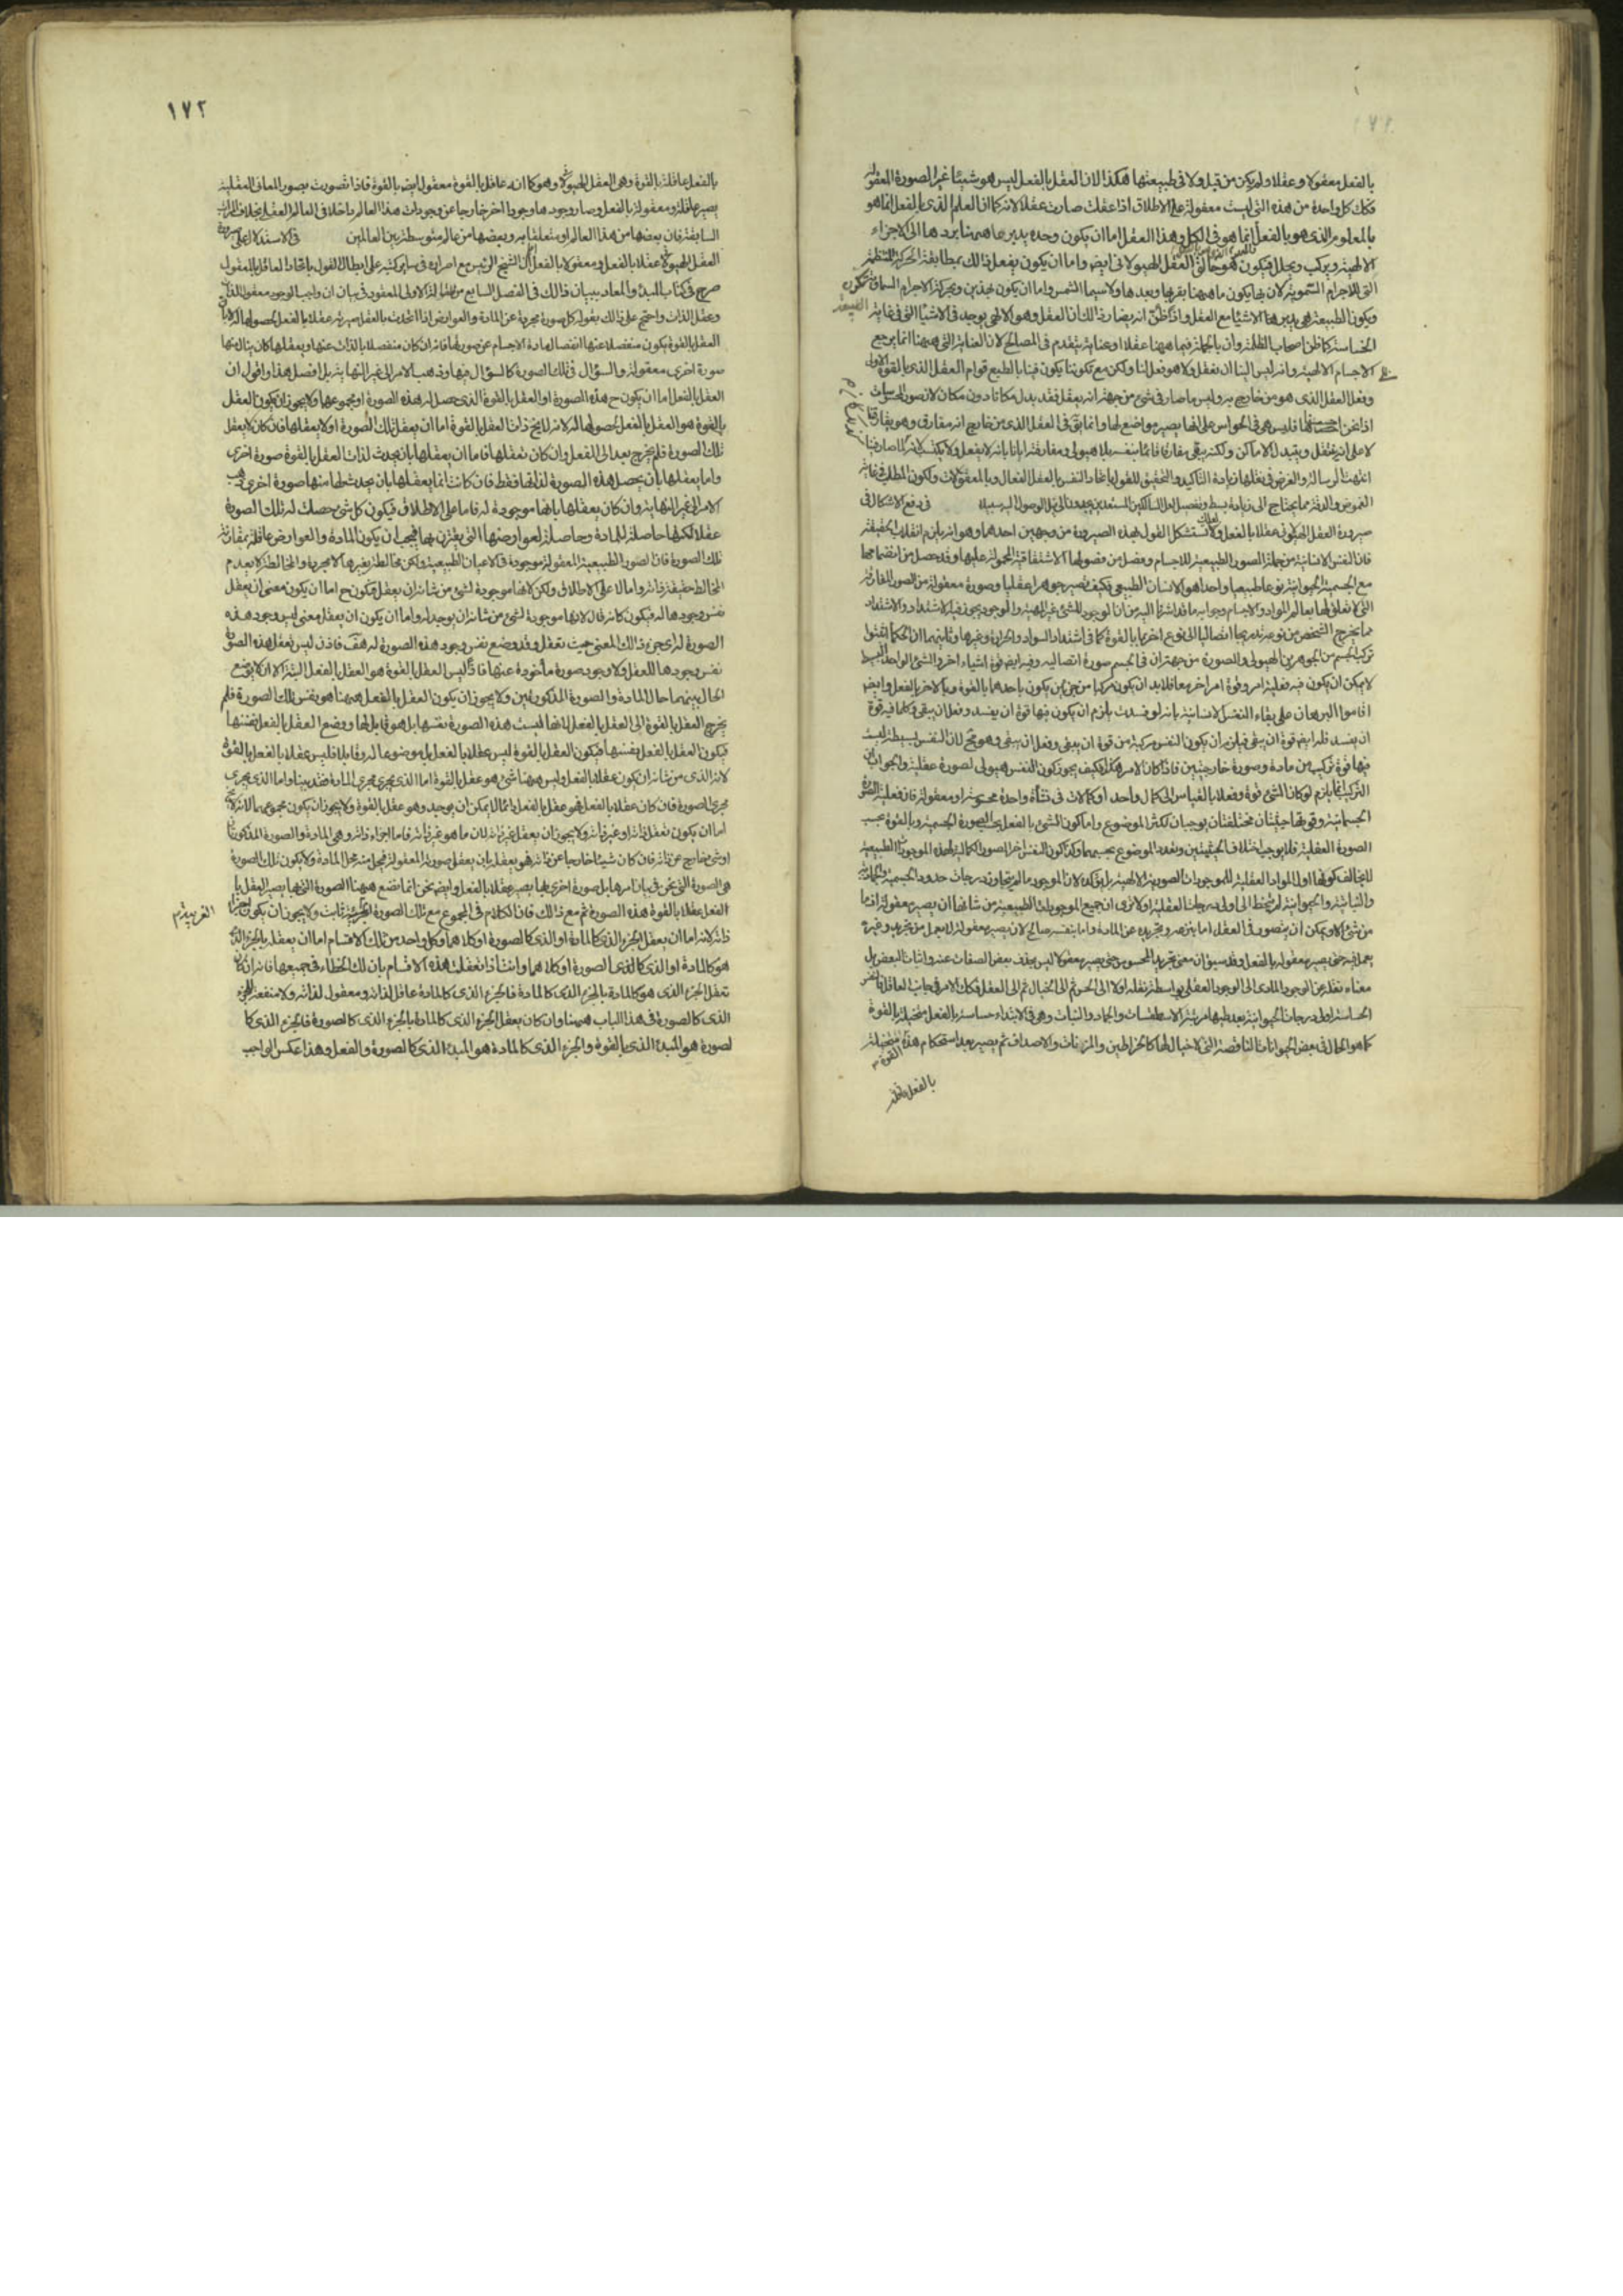 بالفعل معقولا وعقلا ولم يكن من قبل ولا في طبيعتها هكذا لان العقل بالفعل ليس هو شيئا غير الصورة المعقولة
فكك كل واحدة من هذه التي ليست معقولة على الاطلاق اذا عقلت صارت عقلا لانه كما ان العلم الذي بالفعل انما هو
بالمعلوم الذي هو بالفعل انما هو في الكل وهذا العقل اما ان يكون وحده يدبر ما هيهنا بردها الى الاجزاء
الالهية ويركب ويحلل فيكون هو خالق العقل الهيولاني ايضه واما ان يكون يفعل ذلك بمطابقة الحركة المنتظمة
التي للاجرام السموية لان بها يكون ما هيهنا بقربها وبعدها ولا سيما الشمس واما ان يكون بهذين وبحركة الاجرام السماوية تتكون
ويكون الطبيعة هي يدبر هذا الاشياء مع العقل واذ اظن انه يضاد ذلك ان العقل وهو الالهي يوجد في الاشياء التي في غاية
الخساسة كما ظن اصحاب المظلة وان بالجملة فيما هيهنا عقلا او عناية يتقدم في المصالح لان العناية التي هيهنا انما يرجع
الى الاجسام الالهية وانه ليس الينا ان نعقل ولا هو فعل لنا ولكن مع تكوننا يكون فينا بالطبع قوام العقل الذي بالقوة
وفعل العقل الذي هو من خارج به وليس ما صار في شئ من جهة انه يعقل فقد يبدل مكانا دون مكان لان صور المحسوسات
اذا نحن فليس هي في الحواس على انها يصير مواضع لها وانما يق في العقل الذي من خارج انه مفارق وهو يفارقنا
لا على انه ينتقل ويتبدل الاماكن ولكنه يبقى مفارقا قائما بنفسه بلا هيولى ومفارقته ايانا بانه لا يعقل ولا يكتسب لانه كك صار فينا
انتهت الرسالة والغرض في نقلها زيادة التاكيد والتحقيق للقول باتحاد النفس بالعقل الفعال وبالمعقولات ولكون المطلب في غاية
الغموض والدقة مما يحتاج الى زيادة بسط وتفصيل لعل السالكين المستعدين يجدونا الى نيل الوصول اليه سبيلا في دفع الاشكال في
صيرورة العقل الهيولاني عقلا بالفعل ولعلك تستشكل القول بهذه الصيرورة من وجهين احدهما وهو انه يلزم انقلاب الحقيقة
فان النفس الانسانية من جملة الصور الطبيعية للاجسام وفصل من فصولها الاشتقاقية المحمولة عليها وقد حصل من انضمامها
مع الجسمية الحيوانية نوعا طبيعيا واحدا هو الانسان الطبيعي فكيف تصير جوهرا عقليا وصورة معقولة من الصور المفارقة
التي لا تعلق لها بعالم المواد والاجسام وجوابه ما قد اشرنا اليه من ان الوجود للشئ غير المهية والوجود يجوز فيه الاشتداد والاشتداد
مما يخرج الشخص من نوعه تدريجا اتصاليا الى نوع اخر بما بالقوة كما في اشتداد السواد والحرارة وغيرها وثانيهما ان الحكما اثبتوا
تركب الجسم من الجوهرين الهيولى والصورة من جهة ان في الجسم صورة اتصالية وفيه ايضه قوة اشياء اخر والشئ الواحد البسيط
لا يمكن ان يكون فيه فعلية امر وقوة امر اخر معا فلا بد ان يكون مركبا من جزئين يكون باحدهما بالقوة وبالاخر بالفعل وايضه
اقاموا البرهان على بقاء النفس الانسانية بانه لو فسدت يلزم ان يكون فيها قوة ان يفسد وفعل ان يبقى وكلما فيه قوة
ان يفسد فله ايضه قوة ان يبقى فيلزم ان يكون النفس مركبة من قوة ان يبقى وفعل ان يبقى وهو مح لان النفس بسيطة ليست
فيها قوة تركيب من مادة وصورة خارجيتين فاذا كان الامر هكذا فكيف يجوز كون النفس هيولى لصورة عقلية والجواب ان
التركيب انما يلزم لو كان الشئ قوة وفعلا بالقياس الى كمال واحد او كمالات في نشأة واحدة محسوسة او معقولة فان فعلية الصورة
الجسمانية وقوتها حيثيتان مختلفتان يوجبان لتكثر الموضوع واما كون الشئ بالفعل بحسب الصورة الجسمية وبالقوة بحسب
الصورة العقلية فلا يوجب اختلاف الحيثيتين وتعدد الموضوع بحسبهما وكذا كون النفس اخر الصور الكمالية لهذه الموجودات الطبيعية
لا يخالف كونها اول المواد العقلية للموجودات الصورية الالهية بل يؤكده لان الموجود ما لم يتجاوز درجات حدود الجسمية والجمادية
والنباتية والحيوانية لم يتخط الى اولى درجات العقلية او لا ترى ان جميع الموجودات الطبيعية من شانها ان يصير معقولة اذ ما
من شئ الا ويمكن ان يتصور في العقل اما بنزعه وتجريده عن المادة واما بنفسه صالح لان يصير معقولة لا بعمل من تجريد وغيره
يعمل فيه حتى يصير معقولة بالفعل وقد سبق ان معنى تجريد المحسوس حتى يصير معقولا ليس بحذف بعض الصفات عنه واثبات البعض بل
معناه نقله عن الوجود المادي الى الوجود العقلي بواسطة نقله اولا الى الحس ثم الى الخيال ثم الى العقل فكك الامر في جانب العاقل فالنفس
الحساسة اولى درجات الحيوانية بعد طيها مرتبة الاسطقسات والجماد والنبات وهي في الابتداء حساسة بالفعل متخيلة بالقوة
كما هو الحال في بعض الحيوانات الناقصة التي لا خيال لها كالخراطين والدود والاصداف ثم يصير بعد استحكام هذه القوة متخيلة
بالفعل
١٧٢
بالفعل عاقلة بالقوة وهي العقل الهيولاني وهو كما انه عاقل بالقوة معقول ايضه بالقوة فاذا تصورت بصور المعاني العقلية
يصير عاقلة ومعقولة بالفعل وصار وجودها وجودا اخر خارجا عن وجودات هذا العالم داخلا في العالم العقلي بخلاف المراتب
السابقة فان بعضها من هذا العالم او متعلقا به وبعضها من عالم متوسط بين العالمين في الاستدلال على صيرورة
العقل الهيولاني عقلا بالفعل ومعقولا بالفعل ان الشيخ الرئيس مع اصراره في ساير كتبه على ابطال القول باتحاد العاقل بالمعقول
صرح في كتاب المبدء والمعاد ببيان ذلك في الفصل السابع من المقالة الاولى المعقود في بيان ان واجب الوجود معقول الذات
وعقل الذات واحتج على ذلك بقوله كل صورة مجردة عن المادة والعوارض اذا اتحدت بالعقل صيرته عقلا بالفعل بحصولها له لا بان
العقل بالقوة يكون منفصلا عنها انفصال مادة الاجسام عن صورتها فانه ان كان منفصلا بالذات عنها ويعقلها كان ينال منها
صورة اخرى معقولة والسؤال في تلك الصورة كالسؤال فيها وذهب الامر الى غير النهاية بل افصل هذا واقول ان
العقل بالفعل اما ان يكون ح هذه الصورة او العقل بالقوة الذي حصل له هذه الصورة او مجموعهما ولا يجوز ان يكون العقل
بالقوة هو العقل بالفعل لحصولها له لانه لا يخ ذات العقل بالقوة اما ان يعقل تلك الصورة او لا يعقلها فان كان لا يعقل
تلك الصورة فلم يخرج بعد الى الفعل وان كان يعقلها فاما ان يعقلها بان يحدث لذات العقل بالقوة صورة اخرى
واما يعقلها بان يحصل هذه الصورة لذاتها فقط فان كانت انما يعقلها بان يحدث لها منها صورة اخرى ذهب
الامر الى غير النهاية وان كان يعقلها بانها موجودة له فاما على الاطلاق فيكون كل شئ حصلت له تلك الصورة
عقلا لكنها حاصلة للمادة وحاصلة لعوارضها التي يقترن بها فيجب ان يكون المادة والعوارض عاقلة بمقارنة
تلك الصورة فان الصور الطبيعية المعقولة موجودة في الاعيان الطبيعية ولكن مخالطة بغيرها لا مجردها والمخالطة لا يعدم
المخالط حقيقة ذاته واما لا على الاطلاق ولكن لانها موجودة لشئ من شانه ان يعقل فيكون ح اما ان يكون معنى ان يعقل
نفس وجودها له فيكون كانه قال لانها موجودة لشئ من شانه ان يوجد له واما ان يكون ان يعقل معنى ليس وجود هذه
الصورة له اي جزء ذلك المعنى حيث تعقل وقد وضع نفس وجود هذه الصورة له هف فاذن ليس تعقل هذه الصورة
نفس وجودها للعقل ولا وجود صورة مأخوذة عنها فاذن ليس العقل بالقوة هو العقل بالفعل البتة الا ان لا يوضع
الحال بينهما حال المادة والصورة المذكورتين ولا يجوز ان يكون العقل بالفعل هيهنا هو نفس تلك الصورة فلم
يخرج العقل بالقوة الى العقل بالفعل لانها ليست هذه الصورة نفسها بل هو قابل لها ووضع العقل بالفعل نفسها
فيكون العقل بالفعل بنفسها فيكون العقل بالقوة ليس عقلا بالفعل بل موضوعا له وقابلا فليس عقلا بالفعل بالقوة
لانه الذي من شانه ان يكون عقلا بالفعل وليس هيهنا شئ هو عقل بالقوة اما الذي يجري مجرى المادة فقد بينا واما الذي يجري
مجرى الصورة فان كان عقلا بالفعل فهو عقل بالفعل دائما لا يمكن ان يوجد وهو عقل بالقوة ولا يجوز ان يكون مجموعهما لانه لا يخ
اما ان يكون تعقل ذاته او غير ذاته ولا يجوز ان يعقل غير ذاته لان ما هو غير ذاته فاما اجزاء ذاته وهي المادة والصورة المذكورتان
او شئ خارج عن ذاته فان كان شيئا خارجا عن ذاته فهو يعقل بان يعقل صورته المعقولة فيحل منه محل المادة ولا يكون تلك الصورة
هي الصورة التي نحن في بيان امرها بل صورة اخرى بها يصير عقلا بالفعل وايضه نحن انما نضع هيهنا الصورة التي بها يصير العقل با
لفعل عقلا بالقوة هذه الصورة ثم مع ذلك فان الكلام في المجموع مع تلك الصورة الغريبة ثابت ولا يجوز ان يكون اجزاء
ذاته لانه اما ان يعقل الجزء الذي كالمادة او الذي كالصورة او كلاهما وكل واحد من تلك الاقسام اما ان يعقله بالجزء الذي
هو كالمادة او الذي كالصورة او كلاهما وانت اذا تعقلت هذه الاقسام بان لك الخطاء في جميعها فانه ان كان
تعقل الجزء الذي هو كالمادة بالجزء الذي كالمادة فالجزء الذي كالمادة عاقل لذاته ومعقول لذاته ولا منفعة للجزء
الذي كالصورة في هذا الباب هيهنا وان كان يعقل الجزء الذي كالمادة بالجزء الذي كالصورة فالجزء الذي كا
لصورة هو المبدء الذي بالقوة والجزء الذي كالمادة هو المبدء الذي كالصورة والفعل وهذا عكس الواجب
الغريبة م